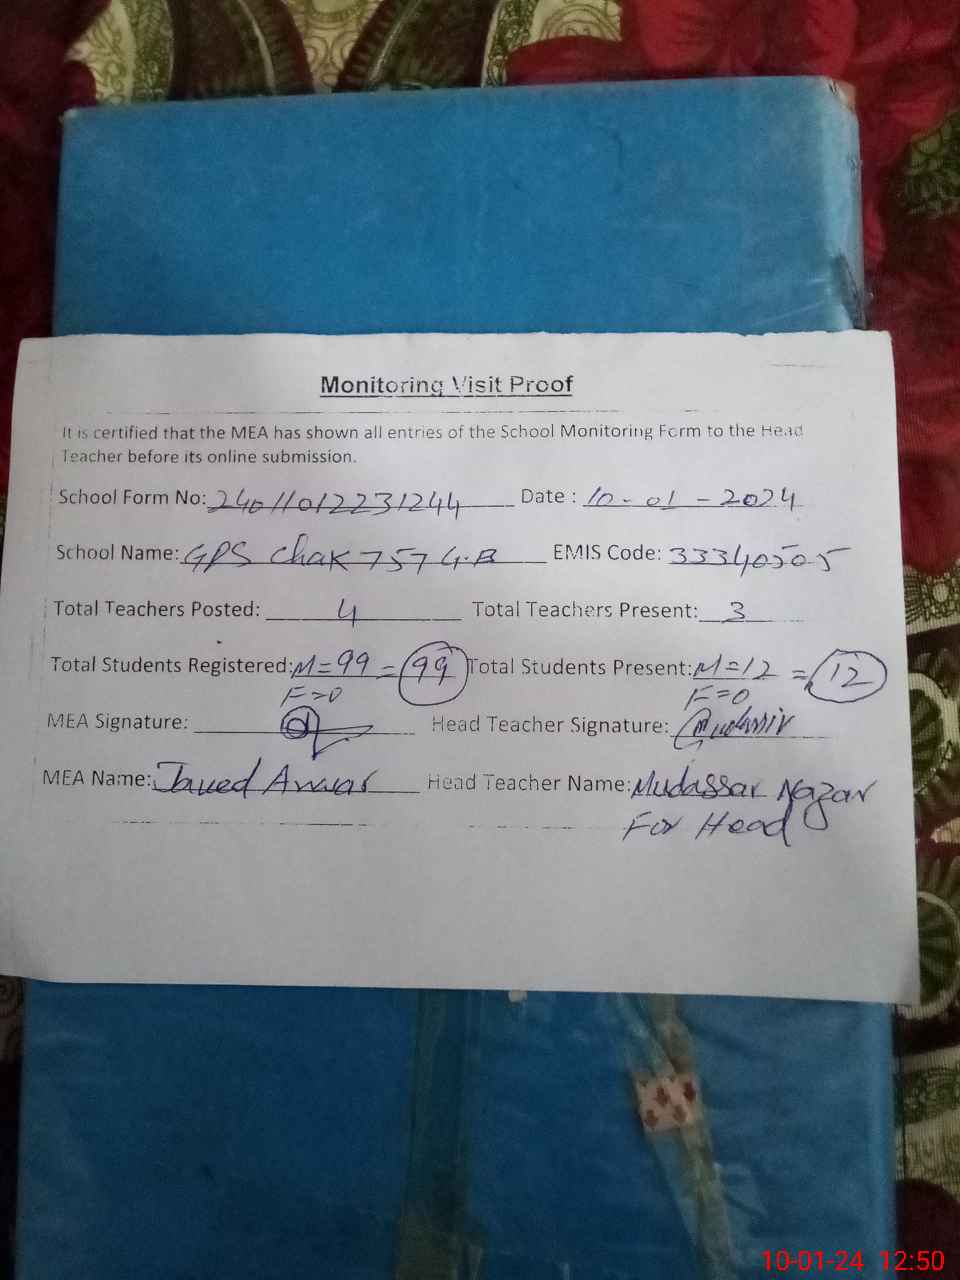 Monitoring Visit Proof
It is certified that the MEA has shown all entries of the School Monitoring Form to the Head
Teacher before its online submission.
School Form No: 24011012231244 Date : 10-01-2024
School Name: GPS Chak 757 G.B EMIS Code: 33340505
Total Teachers Posted: 4 Total Teachers Present: 3
Total Students Registered: M=99 = 99 Total Students Present: M=12 = 12
F=0 F=0
MEA Signature: Head Teacher Signature: Mudassir
MEA Name: Javed Anwar Head Teacher Name: Mudassar Nazar
For Head
10-01-24 12:50